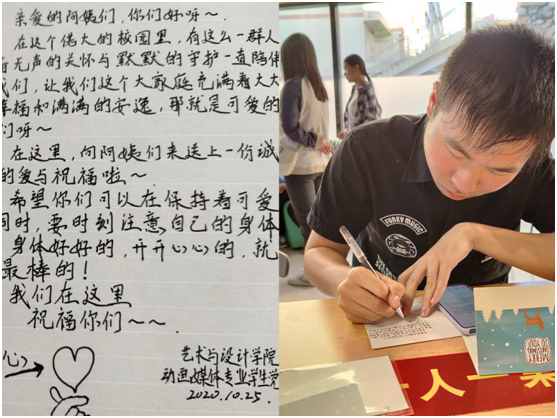 亲爱的阿姨们,你们好呀~
在这个偌大的校园里,有这么一群人
无声的关怀与默默的守护一直陪伴
我们,让我们这个大家庭充满着大大
幸福和满满的安逸,那就是可爱的
们呀~
在这里,向阿姨们来送上一份诚
的爱与祝福啦~
希望你们可以在保持着可爱
同时,要时刻注意自己的身体
身体好好的,开开心心的,就
最棒的!
我们在这里
祝福你们~~
艺术与设计学院
动画媒体专业学生党
2020.10.25.
心
FUNKY MUSIC
MERRY
CHRISTMAS
TO YOU
一人一案